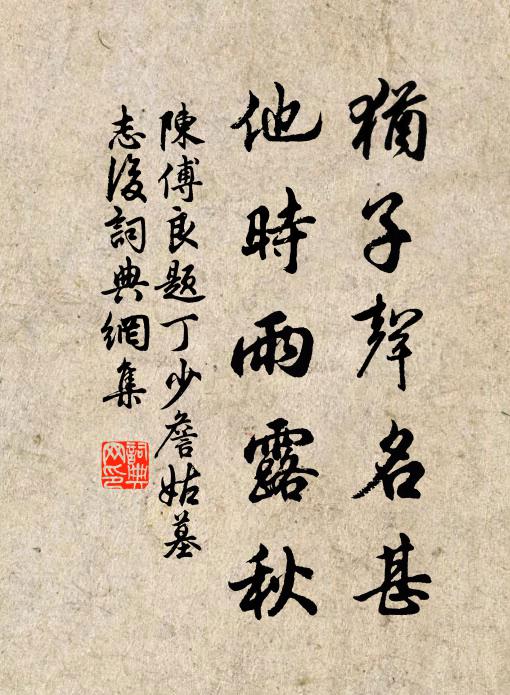 猶子聲名甚
他時雨露秋
陳傅良題丁少詹姑墓
志後詞典網集
詞典網印